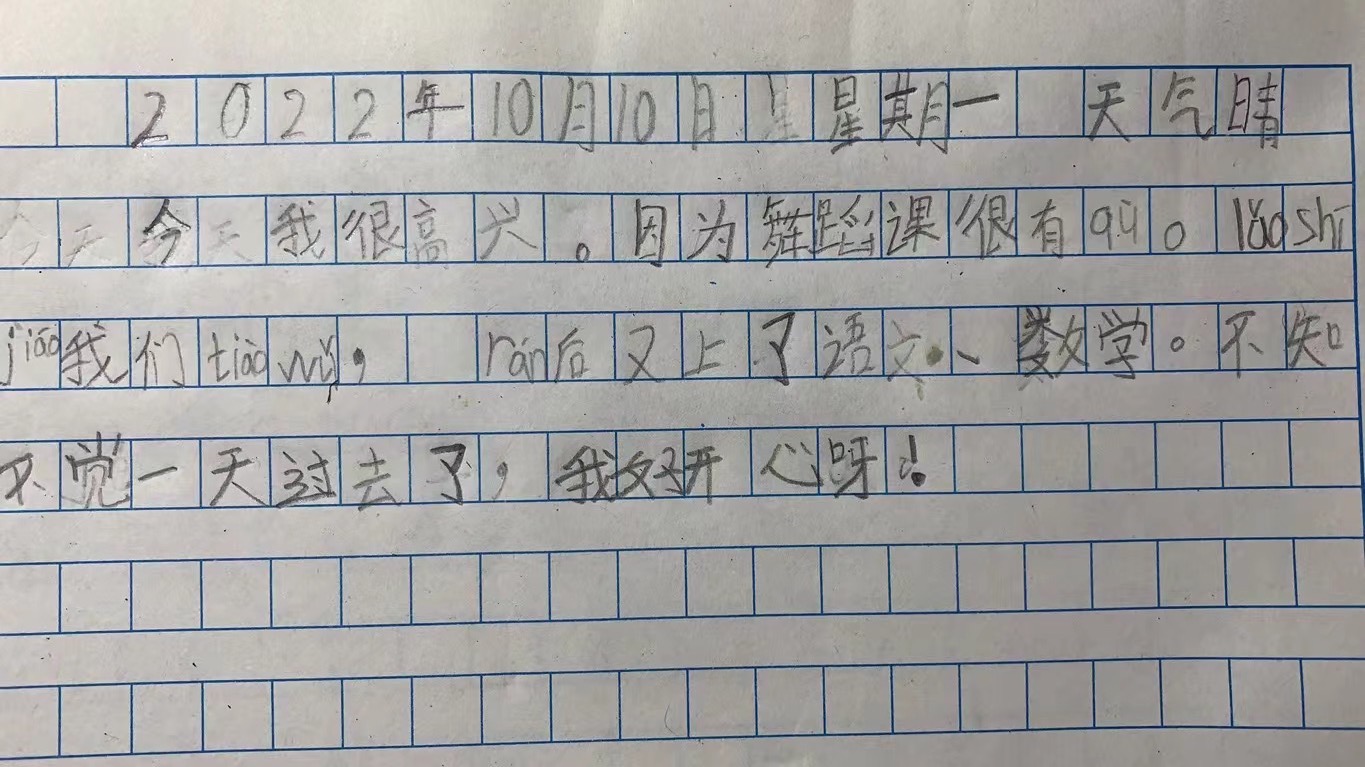 2022年10月10日 星期一 天气晴
今天我很高兴。因为舞蹈课很有qù。lǎoshī
jiāo我们tiàowǔ, rán后又上了语文、数学。不知
不觉一天过去了,我好开心呀!